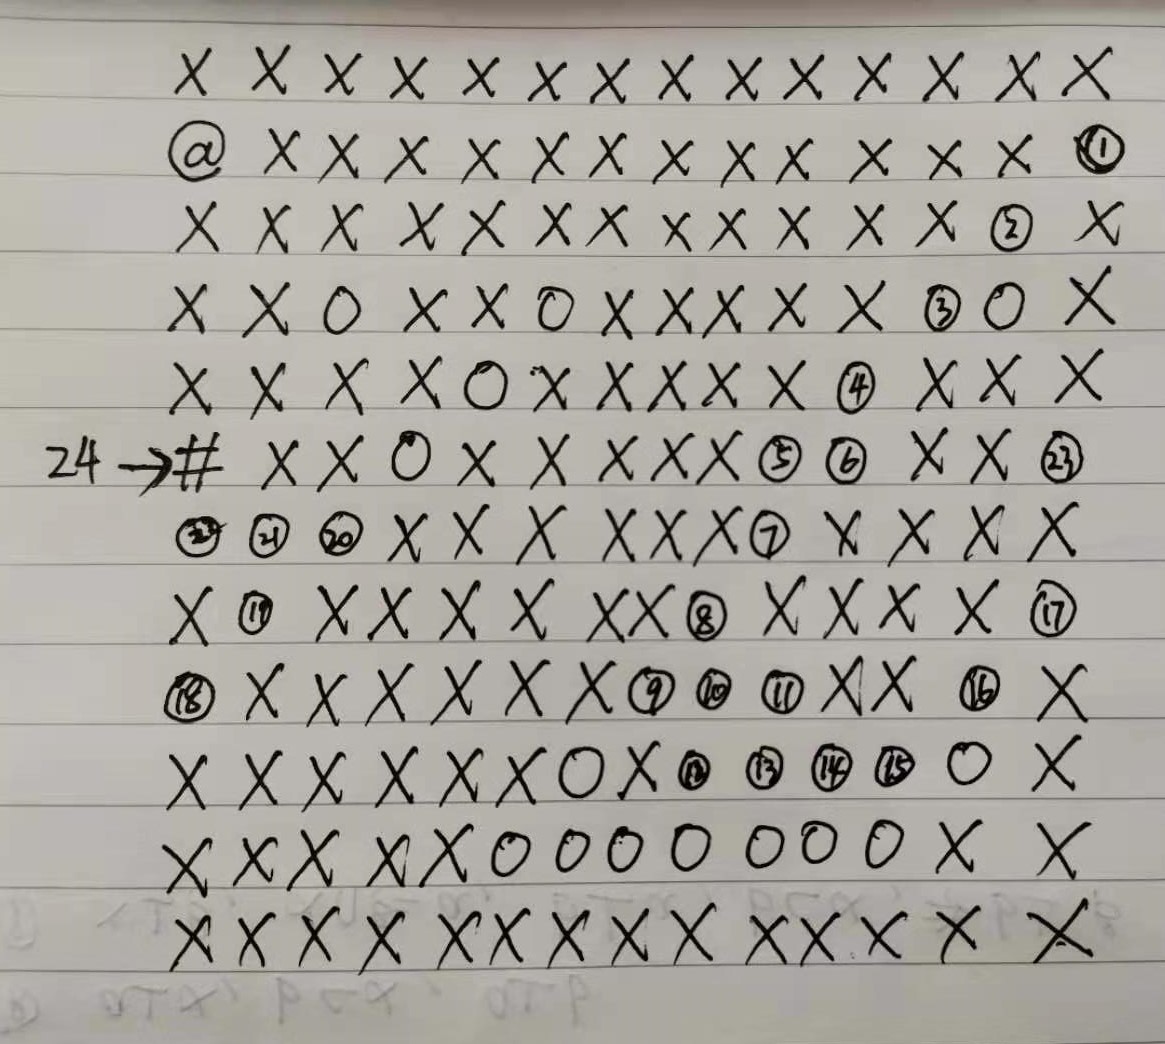 X X X X X X X X X X X X X X
@ X X X X X X X X X X X X ①
X X X X X X X X X X X X ② X
X X O X X O X X X X X ③ O X
X X X X O X X X X X ④ X X X
24 → # X X O X X X X X ⑤ ⑥ X X ㉓
㉒ ㉑ ⑳ X X X X X X ⑦ X X X X
X ⑲ X X X X X X ⑧ X X X X ⑰
⑱ X X X X X X ⑨ ⑩ ⑪ X X ⑯ X
X X X X X X O X ⑫ ⑬ ⑭ ⑮ O X
X X X X X O O O O O O O X X
X X X X X X X X X X X X X X